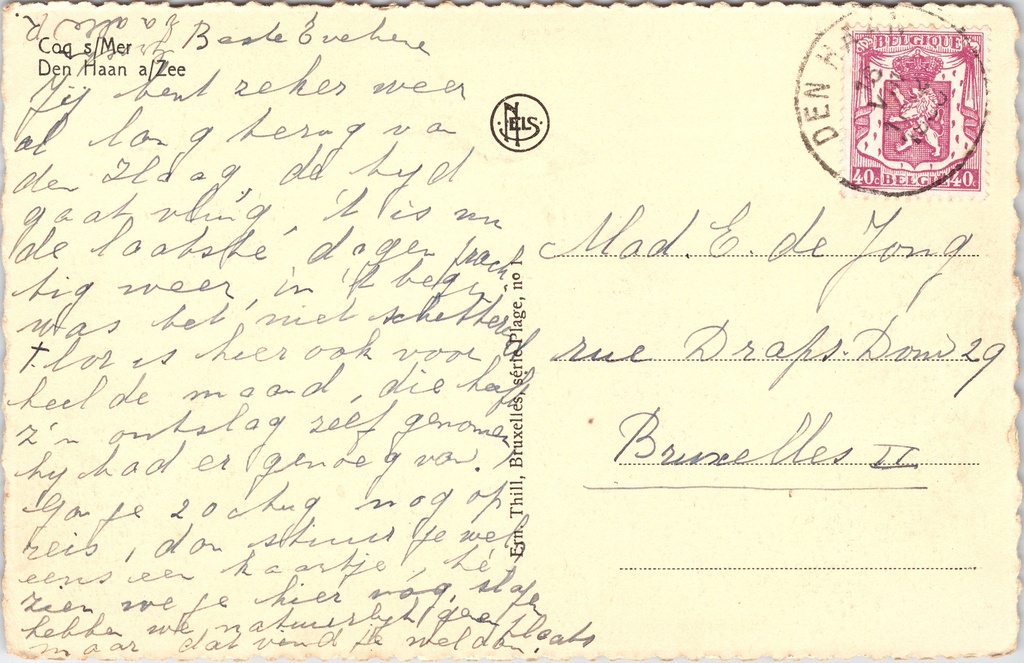 Coq s/Mer
Den Haan a/Zee
Beste Evehere
Jij bent zeker weer
al lang terug van
den Haag, de tijd
gaat vlug 't is nu
de laatste dagen prach
tig weer, in 't begin
was het niet schitterend
Flor is hier ook voor
heel de maand, die heeft
z'n ontslag zelf genomen
hy had er genoeg van.
Ga je zo nog op
reis, dan stuur je wel
eens een kaartje, hè
zien we je hier nog, slapen
hebben we natuurlyk geen plaats
maar dat vind je wel dan.
NELS
Ern. Thill, Bruxelles, série Plage, no 1
DEN HAAN
BELGIQUE
40c BELGIE 40c
Mad. E. de Jong
rue Draps-Dom 29
Bruxelles II